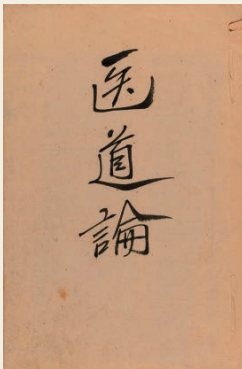 医道論